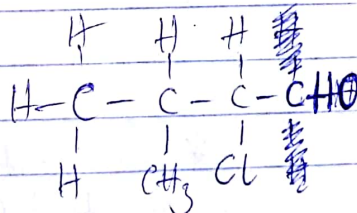 H H H
H-C-C-C-CHO
H CH₃ Cl